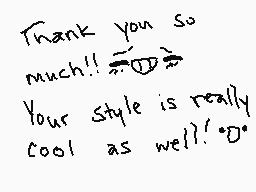 Thank you so
much!!
Your style is really
cool as well!